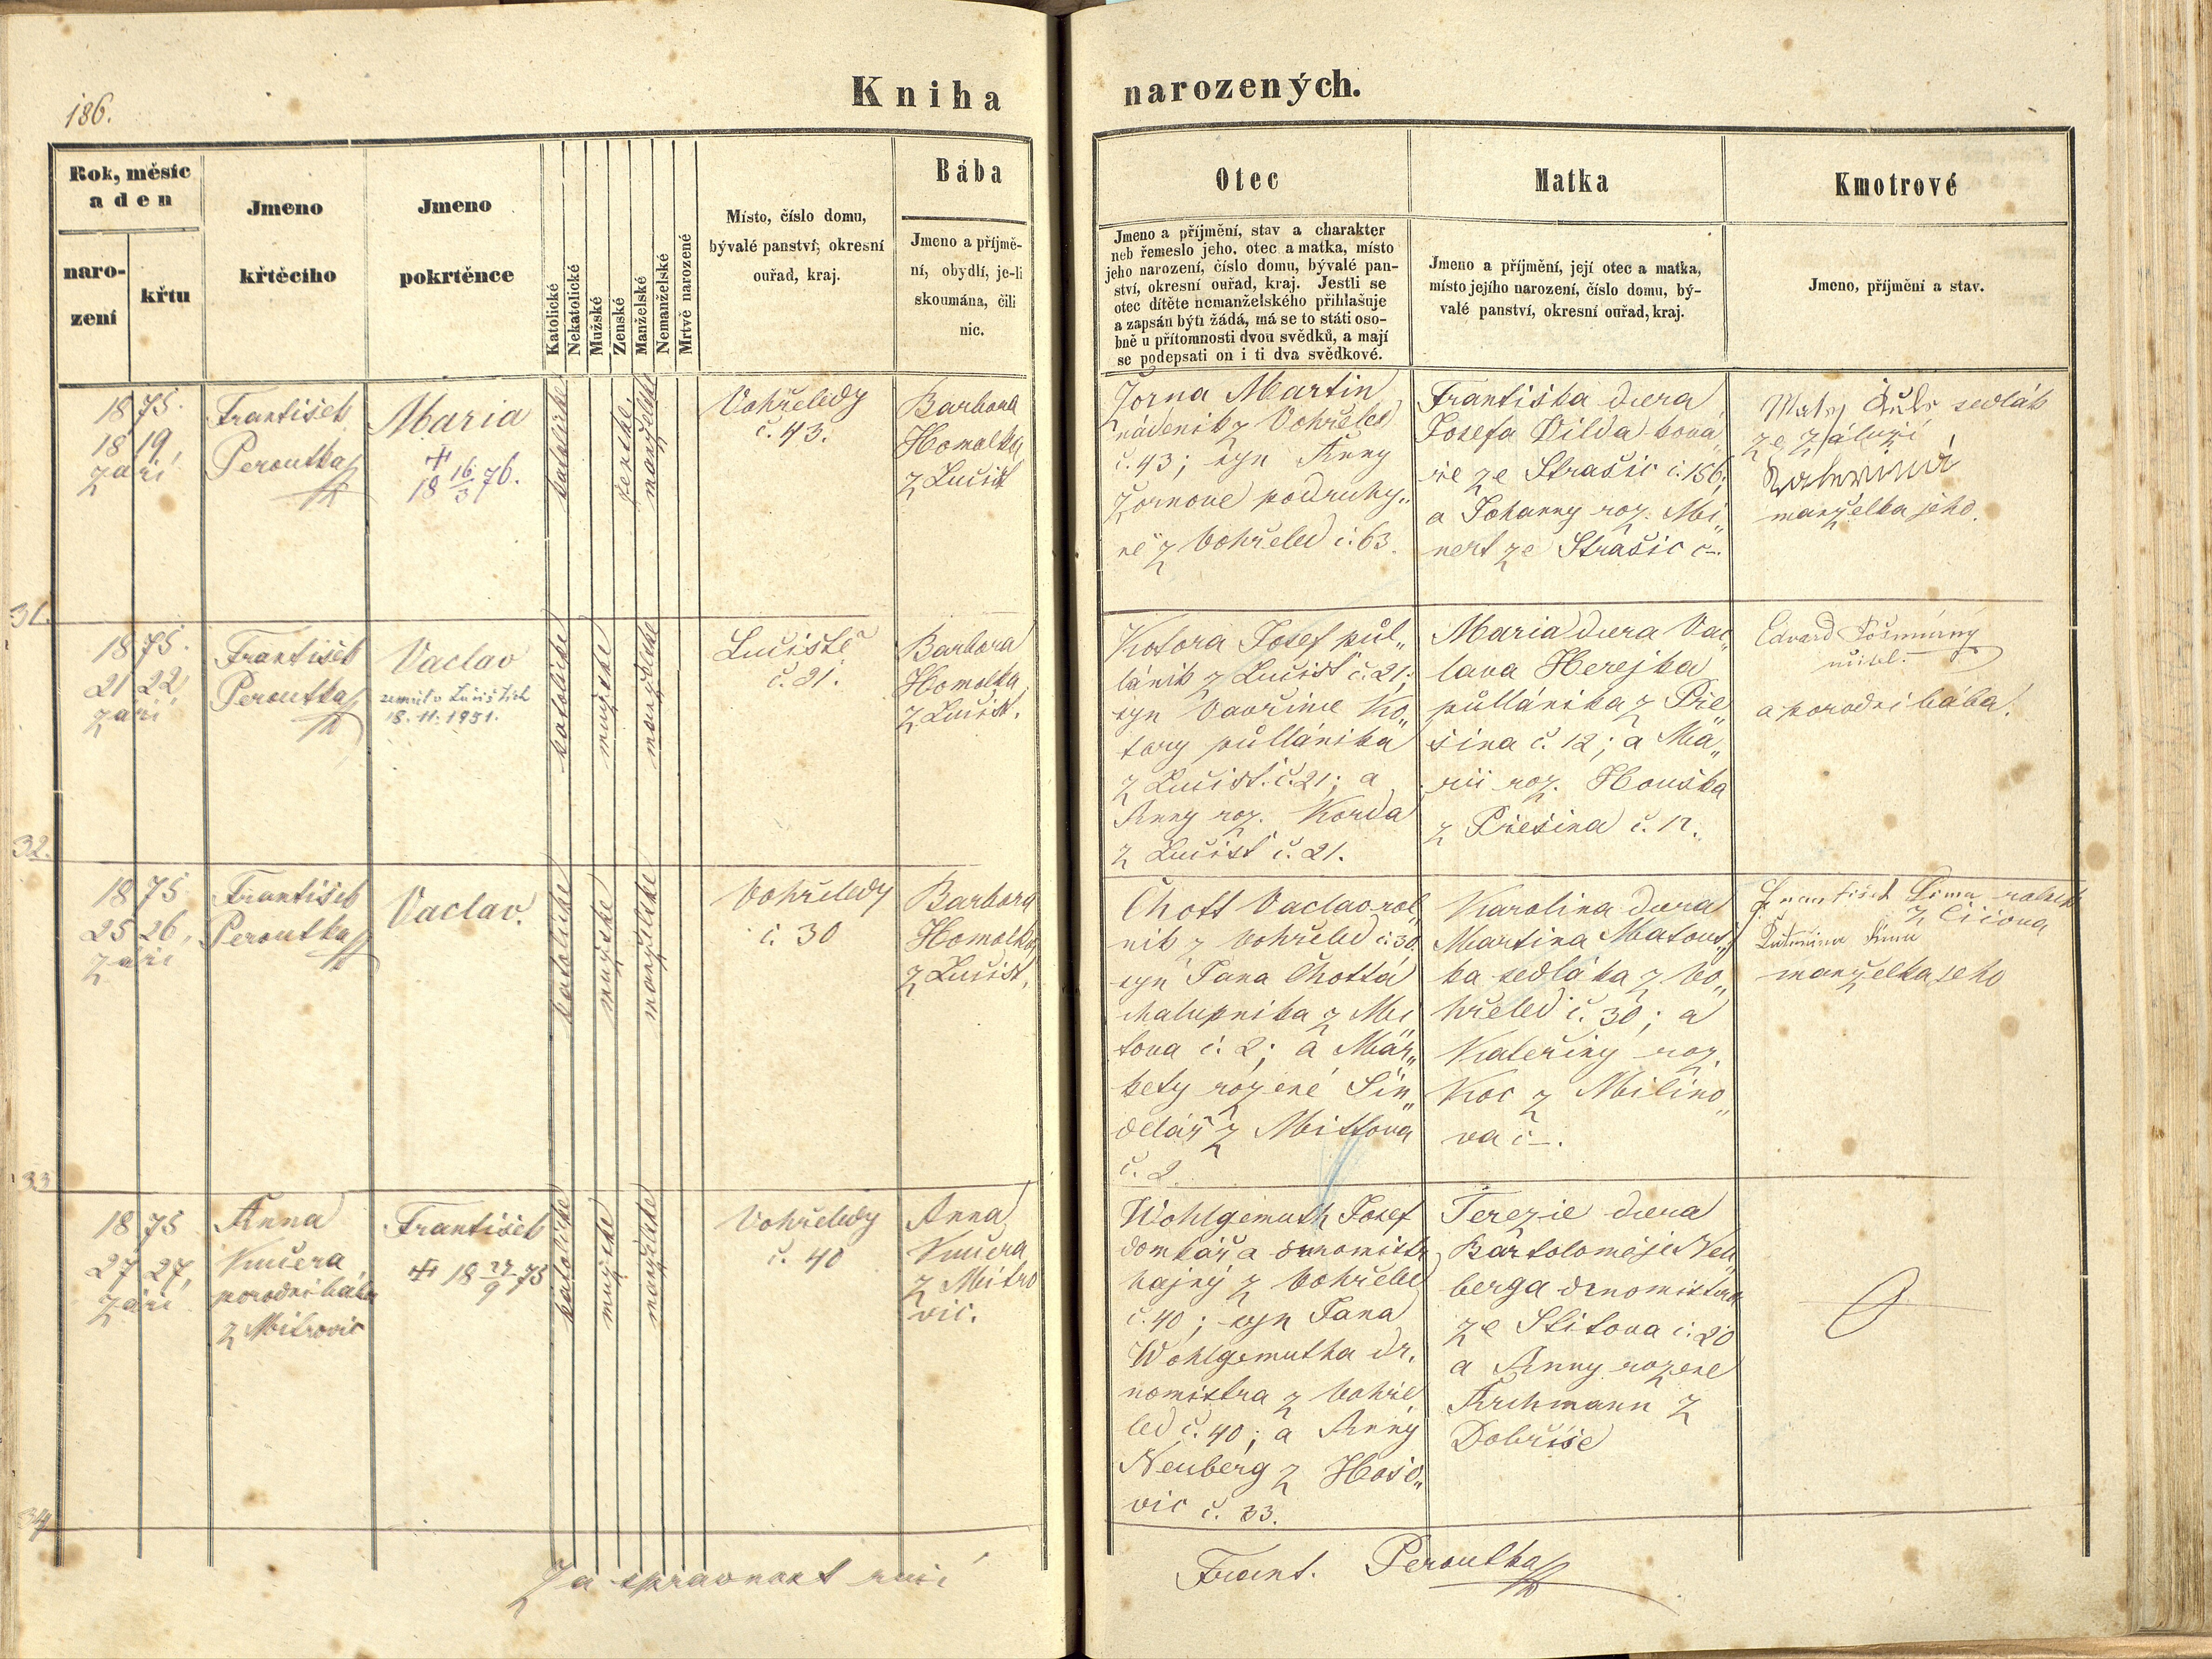 186.
Kniha narozených.
Rok, měsíc
a den
naro-
zení
křtu
Jmeno
křtěcího
Jmeno
pokrtěnce
Katolické
Nekatolické
Mužské
Ženské
Manželské
Nemanželské
Mrtvě narozené
Místo, číslo domu,
bývalé panství, okresní
ouřad, kraj.
Bába
Jmeno a příjmě-
ní, obydlí, je-li
skoumána, čili
nic.
Otec
Jmeno a příjmění, stav a charakter
neb řemeslo jeho, otec a matka, místo
jeho narození, číslo domu, bývalé pan-
ství, okresní ouřad, kraj. Jestli se
otec dítěte nemanželského přihlašuje
a zapsán býti žádá, má se to státi oso-
bně u přítomnosti dvou svědků, a mají
se podepsati on i ti dva svědkové.
Matka
Jmeno a příjmění, její otec a matka,
místo jejího narození, číslo domu, bý-
valé panství, okresní ouřad, kraj.
Kmotrové
Jmeno, příjmění a stav.
1875.
18 19
září
František
Peroutka
Maria
+
18 16/3 76.
katolické
ženské.
manželské
Vohřeledy
č. 43.
Barbora
Homolka
z Lučist
Žorna Martin
nádeník z Vohřeled
č. 43; syn Anny
Žornove podruhy„
ně z Vohřeled č. 63.
Františka dcera
Josefa Dilda ková„
ře ze Strašic č. 156;
a Johanny roz. Mi„
nert ze Strašic č–.
sedlák
ze Záluží
manželka jeho.
31.
1875.
21 22,
září
František
Peroutka
Vaclav
zemřel v Lučištích
18. 11. 1951.
katolické
mužské
manželské
Lučiště
č. 21.
Barbora
Homolka
z Lučist.
Kotora Josef půl„
láník z Lučist č. 21;
syn Vavřince Ko„
tory půlláníka
z Lučist. č. 21; a
Anny roz. Korda
z Lučist č. 21.
Maria dcera Vac„
lava Herejka
půlláníka z Pře
šina č. 12; a Ma„
rii roz. Houška
z Přešina č. 12.
Edvard
učitel.
a porodní bába.
32.
1875
25 26,
září
František
Peroutka
Vaclav.
katolické
mužské
manželské
Vohřeledy
č. 30
Barbora
Homolka
z Lučist.
Chott Vaclav rol„
ník z Vohřeled č. 30
syn Jana Chotta
chalupníka z Mi
tova č. 2; a Mar„
kety rozené Šin„
delář z Mittova
č. 2.
Karolina dcera
Martina Matouš„
ka sedláka z Vo„
hřeled č. 30; a
Kateřiny roz.
Koc z Milino„
va č–.
František Šima rolník
z Čičova
Šima
manželka jeho
33
1875
27 27,
září
Anna
Kučera
porodní bába
z Mitrovic
František
+ 18 27/9 75
katolické
mužské
manželské
Vohřeledy
č. 40
Anna
Kučera
z Mitro
vic.
Wohlgemuth Josef
domkář a drnomistr
hajný z Vohřeled
č. 40; syn Jana
Wohlgemutha dr„
nomistra z Vohře
led č. 40; a Anny
Neuberg z Hošo„
vic č. 33.
Terezie dcera
Bartoloměje Neu„
berga drnomistra
ze Štítova č. 20
a Anny rozené
Archmann z
Dobříše
34
Za správnost ručí Frant. Peroutka